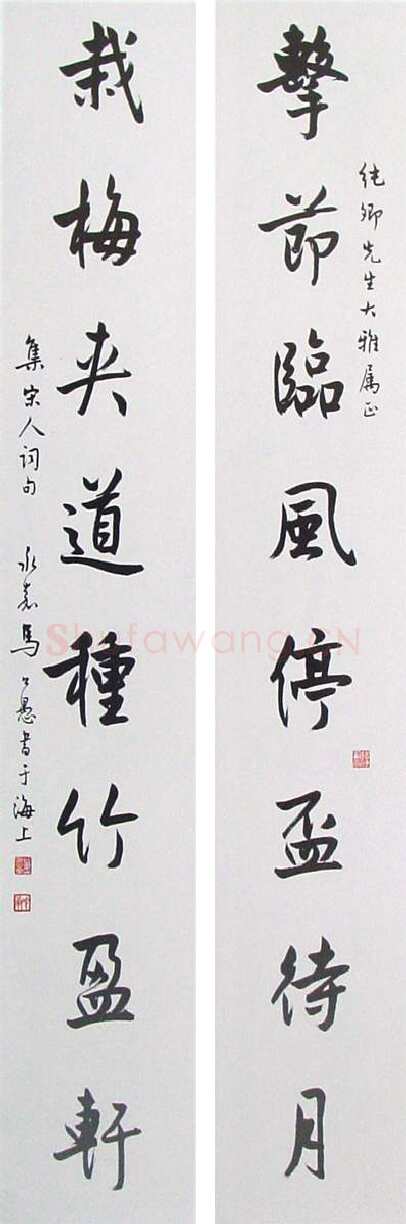 擊節臨風停盃待月
純卿先生大雅属正
栽梅夾道種竹盈軒
集宋人詞句 永嘉馬公愚書于海上
Shufawang.CN